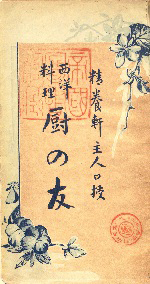 精養軒主人口授
西洋
料理
厨の友